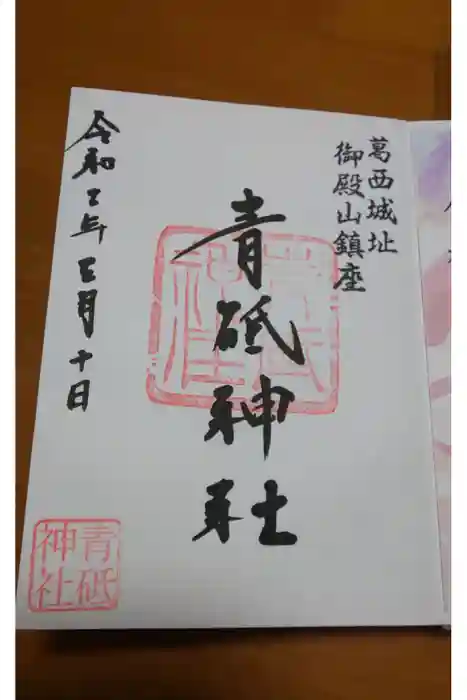 葛西城址
御殿山鎮座
青砥神社
令和三年三月十日
青砥
神社